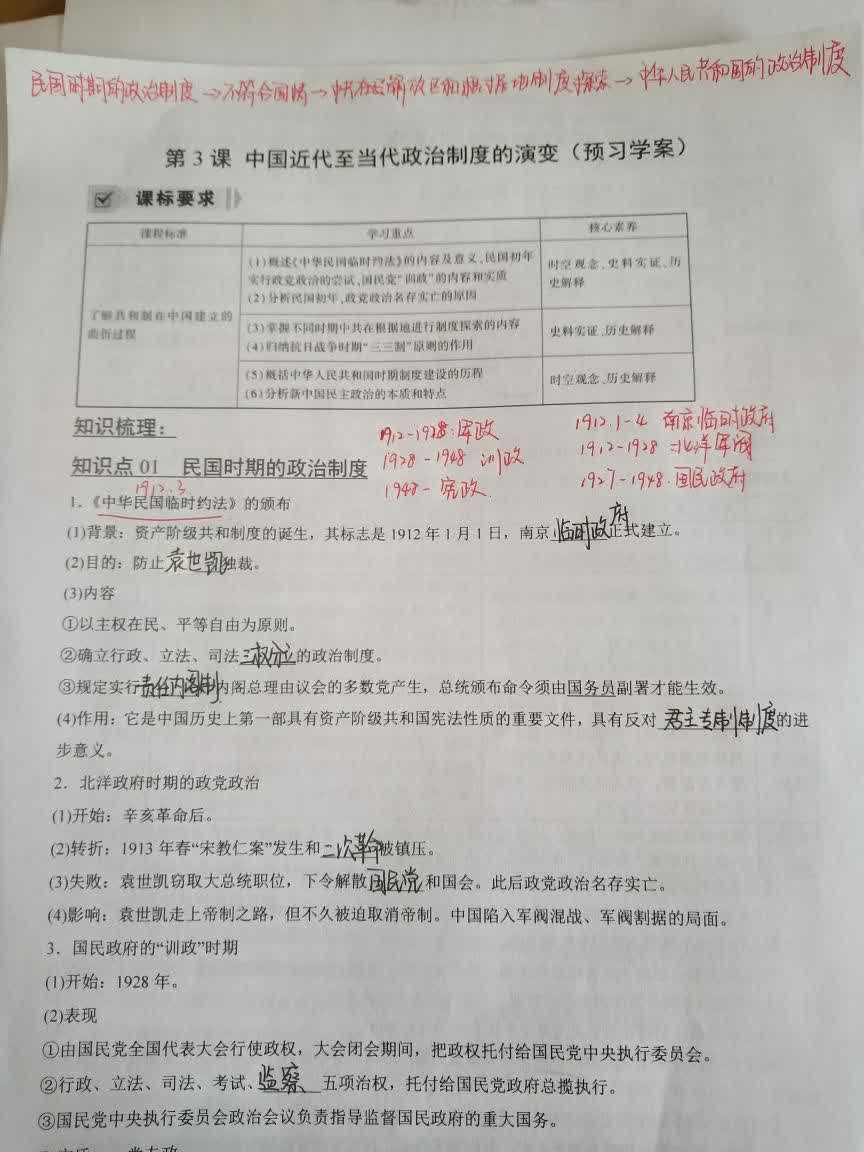 民国时期的政治制度→不符合国情→中共在解放区和根据地制度探索→中华人民共和国的政治制度
第3课 中国近代至当代政治制度的演变（预习学案）
课标要求
课程标准 学习重点 核心素养
了解共和制在中国建立的曲折过程
(1)概述《中华民国临时约法》的内容及意义、民国初年
实行政党政治的尝试、国民党“训政”的内容和实质
(2)分析民国初年,政党政治名存实亡的原因
时空观念、史料实证、历
史解释
(3)掌握不同时期中共在根据地进行制度探索的内容
(4)归纳抗日战争时期“三三制”原则的作用
史料实证、历史解释
(5)概括中华人民共和国时期制度建设的历程
(6)分析新中国民主政治的本质和特点
时空观念、历史解释
知识梳理：
1912-1928:军政
1912.1-4 南京临时政府
1928-1948 训政
1912-1928:北洋军阀
1948- 宪政
1927-1948.国民政府
知识点 01 民国时期的政治制度
1912.3.
1.《中华民国临时约法》的颁布
(1)背景：资产阶级共和制度的诞生，其标志是 1912 年 1 月 1 日，南京临时政府正式建立。
(2)目的：防止袁世凯独裁。
(3)内容
①以主权在民、平等自由为原则。
②确立行政、立法、司法三权分立的政治制度。
③规定实行责任内阁制内阁总理由议会的多数党产生，总统颁布命令须由国务员副署才能生效。
(4)作用：它是中国历史上第一部具有资产阶级共和国宪法性质的重要文件，具有反对君主专制制度的进
步意义。
2．北洋政府时期的政党政治
(1)开始：辛亥革命后。
(2)转折：1913 年春“宋教仁案”发生和二次革命被镇压。
(3)失败：袁世凯窃取大总统职位，下令解散国民党和国会。此后政党政治名存实亡。
(4)影响：袁世凯走上帝制之路，但不久被迫取消帝制。中国陷入军阀混战、军阀割据的局面。
3．国民政府的“训政”时期
(1)开始：1928 年。
(2)表现
①由国民党全国代表大会行使政权，大会闭会期间，把政权托付给国民党中央执行委员会。
②行政、立法、司法、考试、监察五项治权，托付给国民党政府总揽执行。
③国民党中央执行委员会政治会议负责指导监督国民政府的重大国务。